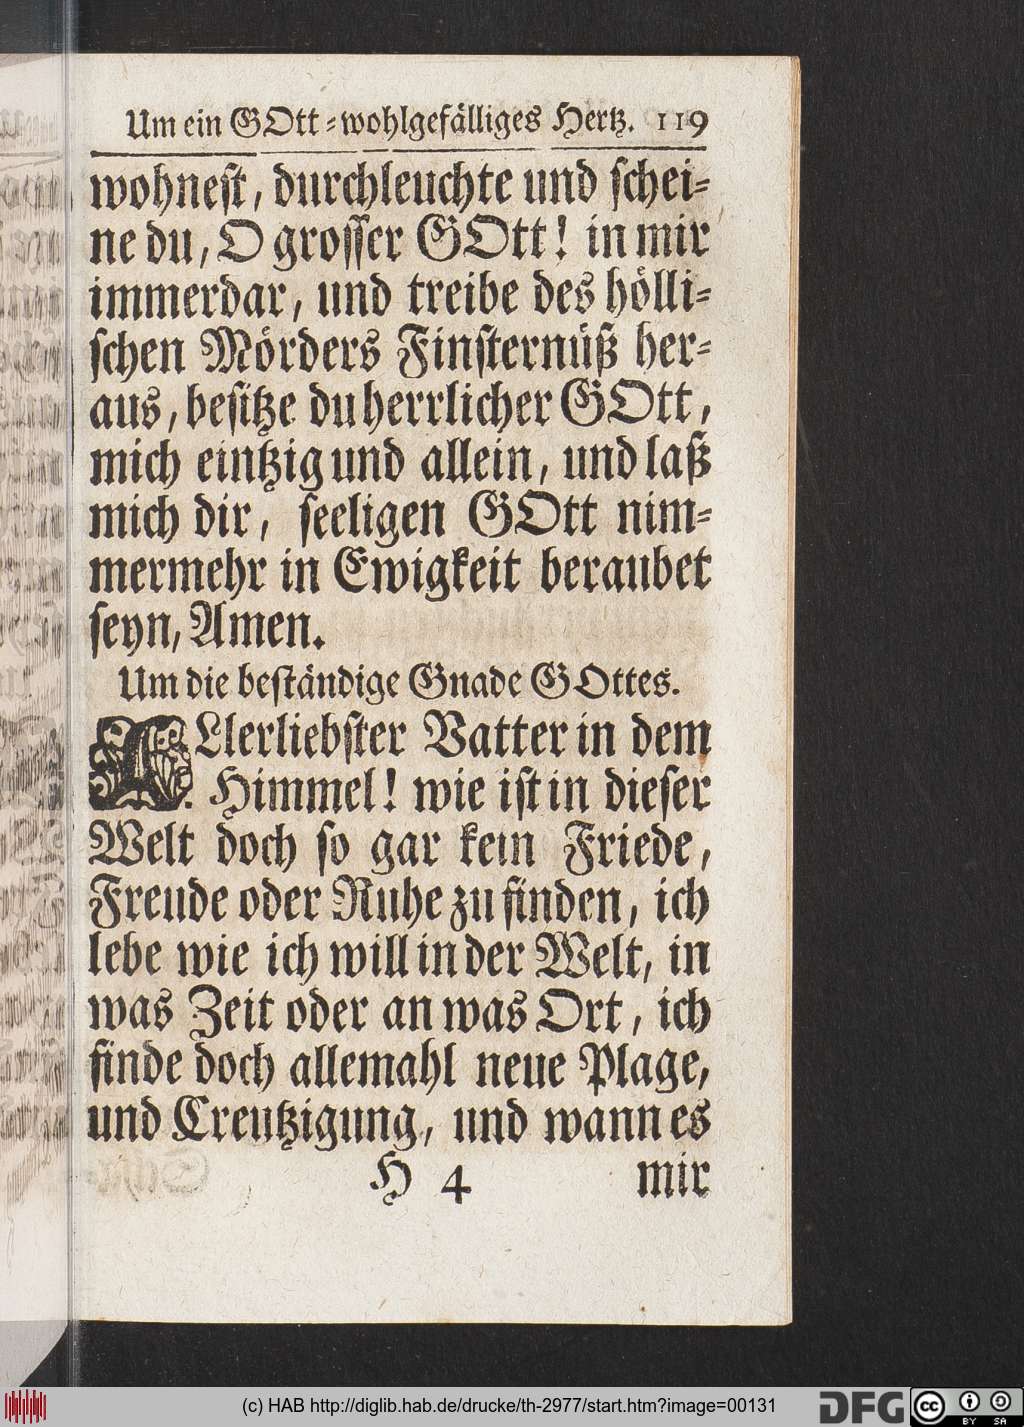 Um ein GOtt-wohlgefälliges Hertz. 119
wohnest, durchleuchte und schei-
ne du, O grosser GOtt! in mir
immerdar, und treibe des hölli-
schen Mörders Finsternüß her-
aus, besitze du herrlicher GOtt,
mich eintzig und allein, und laß
mich dir, seeligen GOtt nim-
mermehr in Ewigkeit beraubet
seyn, Amen.
Um die beständige Gnade GOttes.
ALlerliebster Vatter in dem
Himmel! wie ist in dieser
Welt doch so gar kein Friede,
Freude oder Ruhe zu finden, ich
lebe wie ich will in der Welt, in
was Zeit oder an was Ort, ich
finde doch allemahl neue Plage,
und Creutzigung, und wann es
H 4 mir
(c) HAB http://diglib.hab.de/drucke/th-2977/start.htm?image=00131
DFG cc BY SA